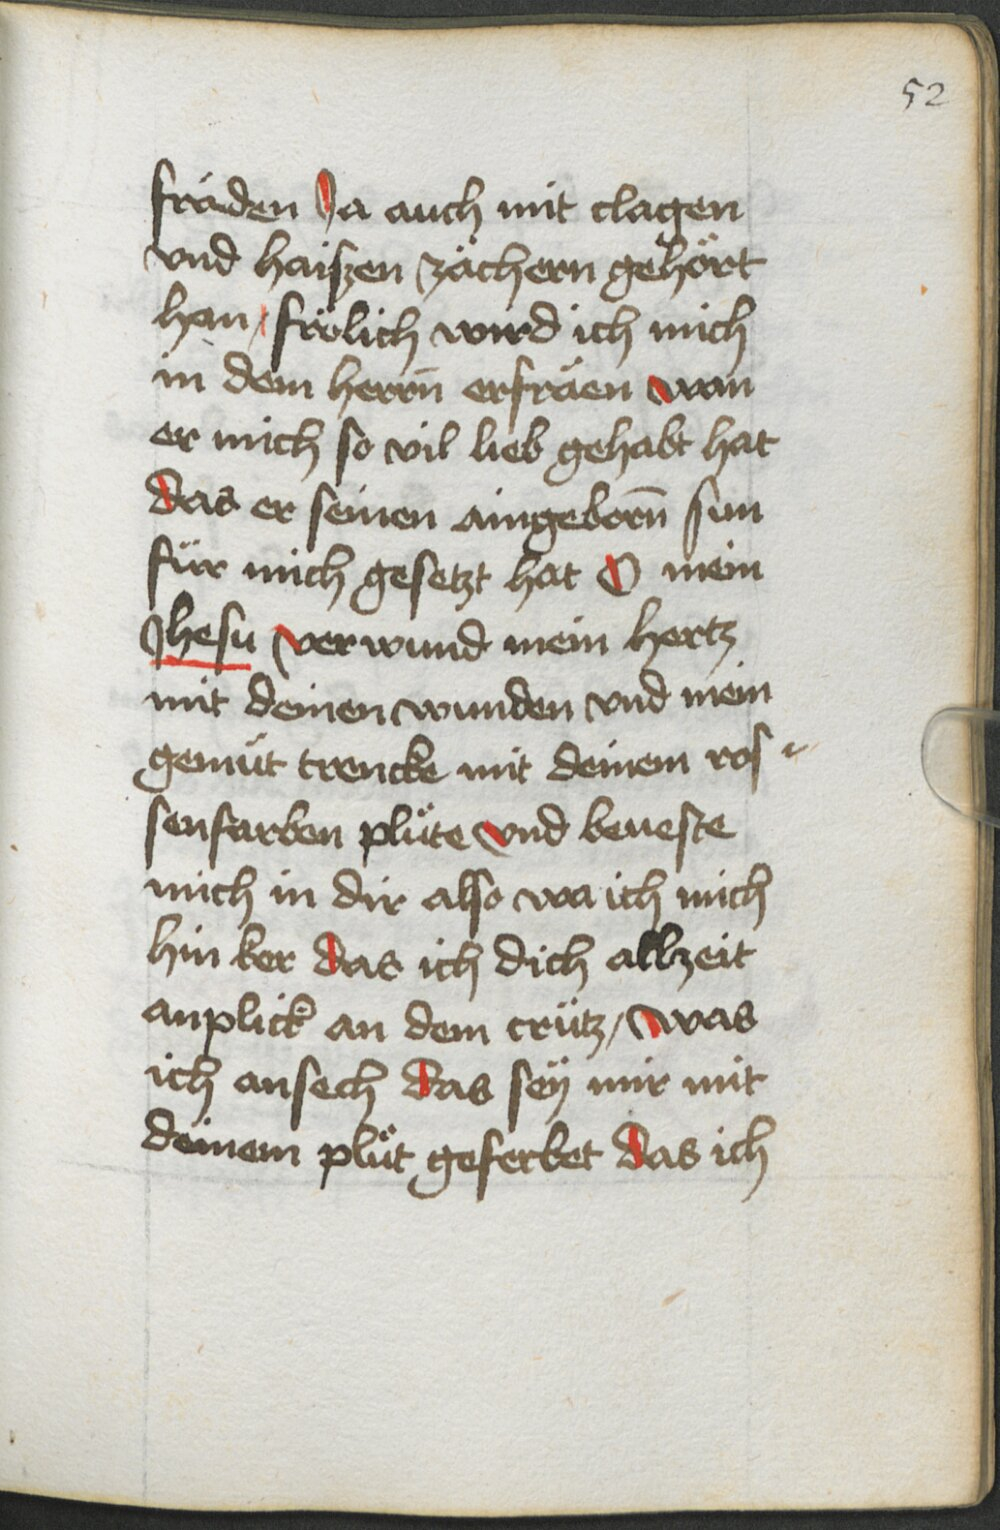 52
fräden Ja auch mit clagen
vnd haiszen zächern gehört
han / frölich wird ich mich
in dem herrn̄ erfräen wan
er mich so vil lieb gehabt hat
das er seinen aingeborn̄ sun
für mich gesetzt hat O mein
Jhesu verwund mein hertz
mit deinen wunden vnd mein
gemüt trencke mit deinem ros-
senfarben plüte vnd beueste
mich in dir also wa ich mich
hin ker das ich dich allzeit
anplick an dem crütz / was
ich ansech das sëy mir mit
deinem plüt geferbet das ich